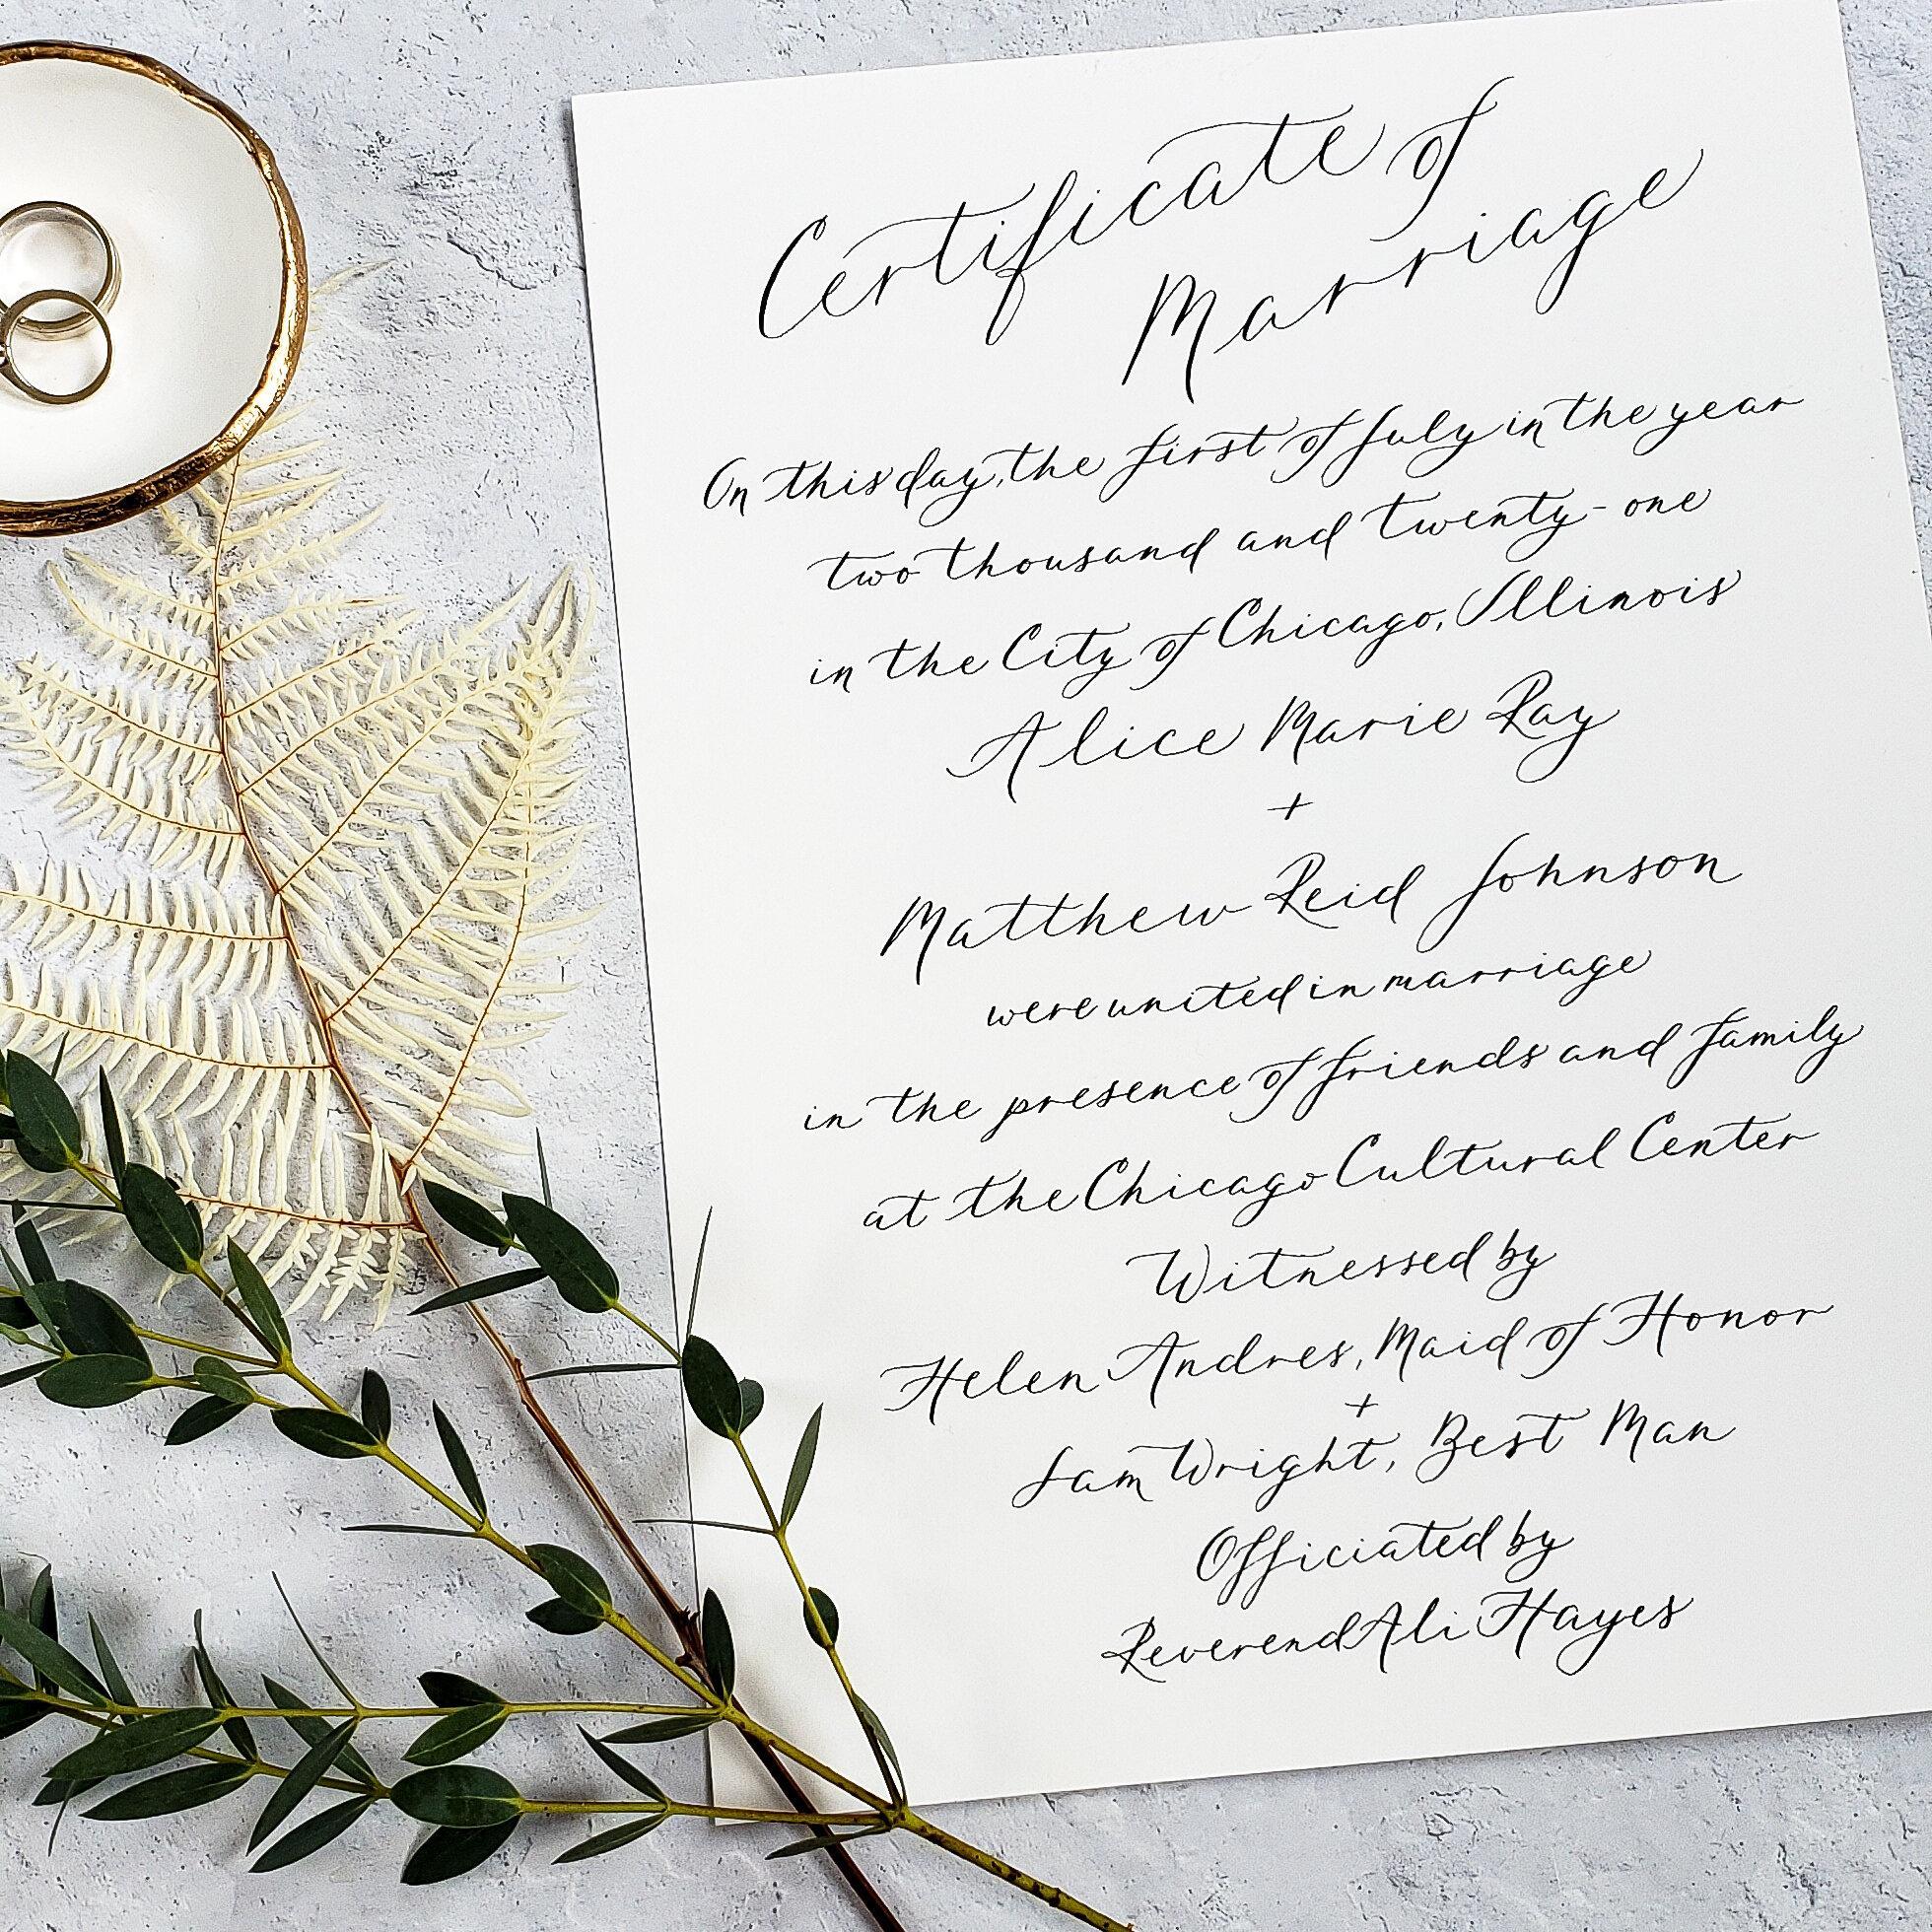 Certificate of
Marriage
On this day, the first of July in the year
two thousand and twenty-one
in the City of Chicago, Illinois
Alice Marie Ray
+
Matthew Reid Johnson
were united in marriage
in the presence of friends and family
at the Chicago Cultural Center
Witnessed by
Helen Andres, Maid of Honor
+
Sam Wright, Best Man
Officiated by
Reverend Ali Hayes